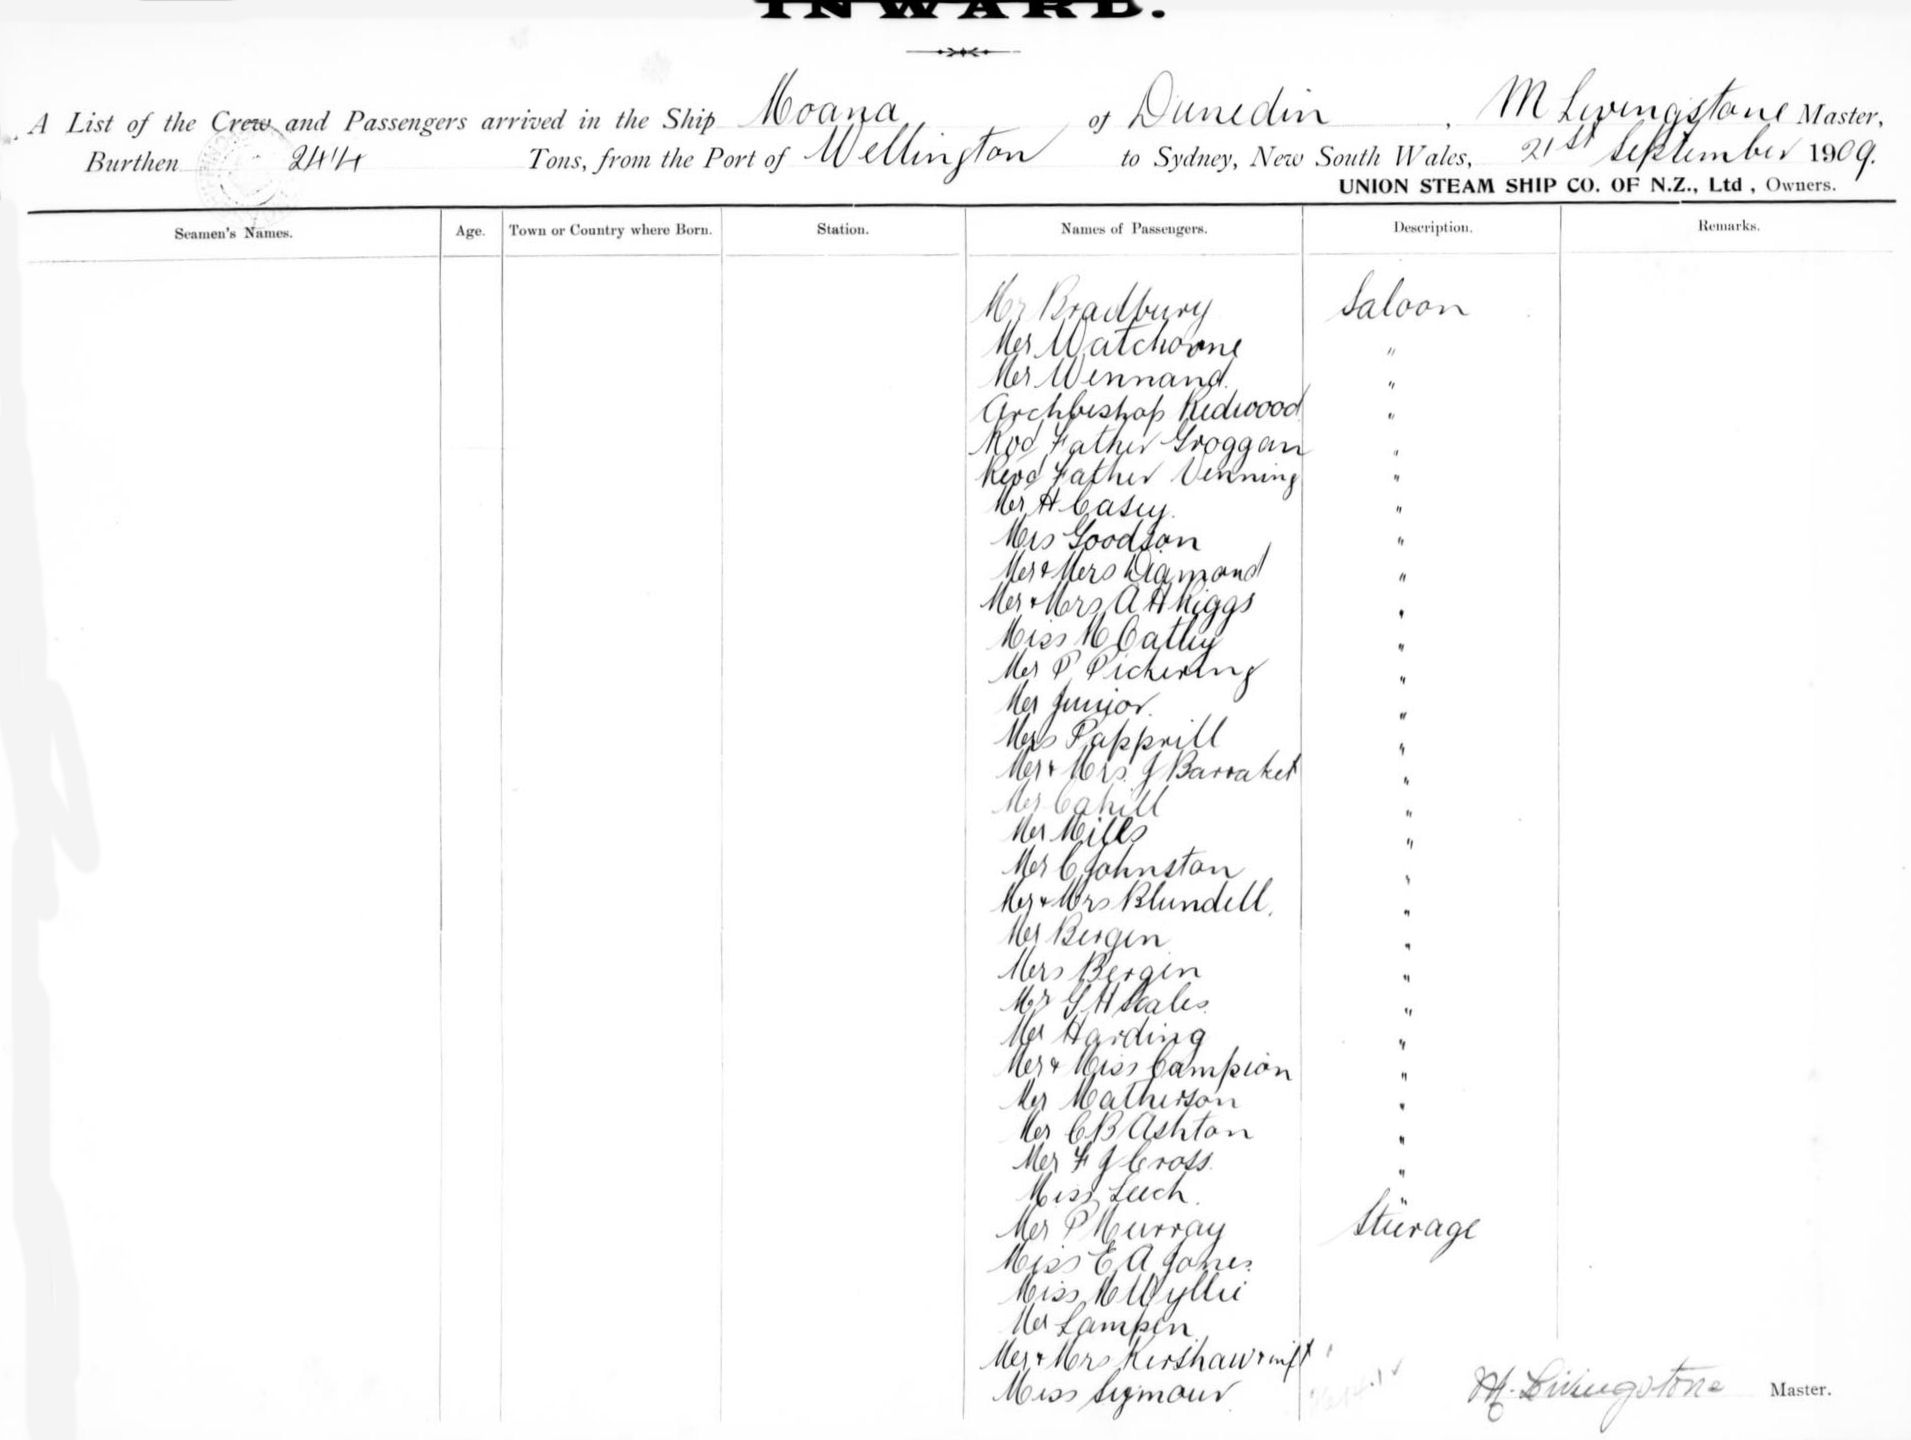 INWARD.
A List of the Crew and Passengers arrived in the Ship Moana of Dunedin, M Livingstone Master,
Burthen 2414 Tons, from the Port of Wellington to Sydney, New South Wales, 21st September 1909.
UNION STEAM SHIP CO. OF N.Z., Ltd , Owners.
Seamen's Names. Age. Town or Country where Born. Station. Names of Passengers. Description. Remarks.
Mr Bradbury Saloon
Mr Watchorne "
Mr Wennand. "
Archbishop Redwood "
Rvd Father Groggan "
Revd Father Venning "
Mr H Casey. "
Mrs Goodson "
Mr & Mrs Diamond "
Mr & Mrs A H Riggs "
Miss M Catley "
Mr P Pickering "
Mr Junior. "
Mrs Papprill "
Mr & Mrs. J Barraket "
Mr Cahill "
Mr Mills "
Mr C Johnston "
Mr & Mrs Blundell. "
Mr Bergin "
Mrs Bergin "
Mr G H Scales. "
Mr Harding "
Mr & Miss Campion "
Mr Matherson "
Mr C B Ashton "
Mr F J Cross. "
Miss Leech. "
Mr P Murray Steerage
Miss E A Jones.
Miss M Wyllie
Mr Lampen
Mr & Mrs Kershaw & inft
Miss Seymour M. Livingstone Master.